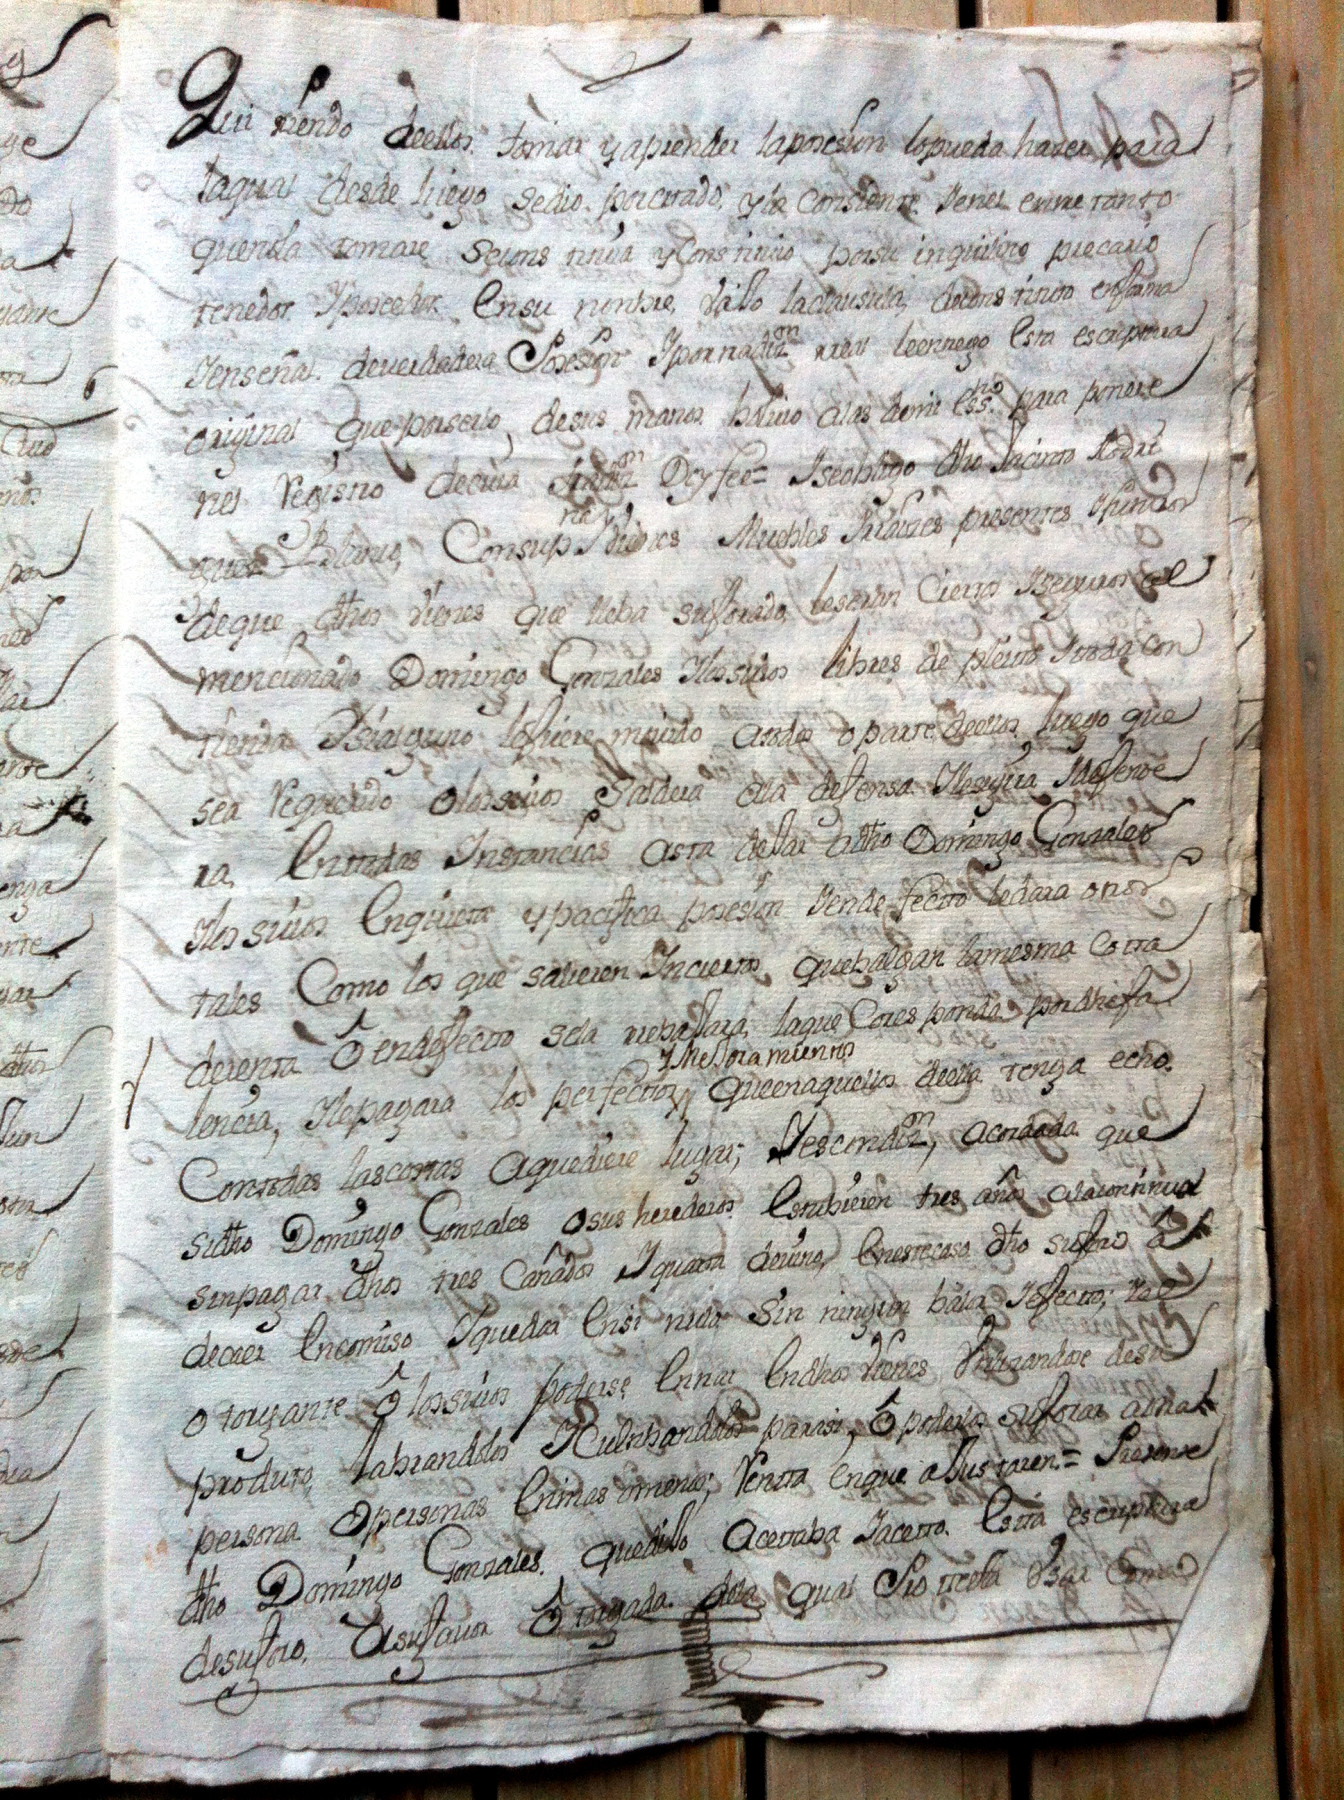 Quiriendo deellos tomar y aprender laposesion lopueda hacer para
laqual desde luego sedio por citado, y le consiente Ienel entretanto
quenola tomare seconstituia yConstituio porsu inquilino precario
tenedor Iposeedor Ensu nombre, la clausula deconstituto enforma
Ienseñal deverdadera Posesion Ipor tradizn real leentrego Esta escriptura
original que porserlo, desus manos bolvio alas demi Essno para ponerle
nel Rexistro decuia tradizn Doy fee = Iseobligo dho Jacinto Rodri
guez Consup na Ivienes Muebles Iraices presentes Ifuturos
deque dhos vienes que lleba suforado, leseran Ciertos Iseguros al
mencionado Domingo Gonzales Ilossuios libres de pleito Itoda con
tienda Isialguno lefuere mouido atodos o parte deellos luego que
sea Requerido olossuios Saldera ala defensa Ileseguira Idefende
ra, Entodas Instancias asta dejar adho Domingo Gonzales
Ilos suios Enquieta y pacifica posesion Iende fecto ledara otros
tales Como los que salieren Inciertos quebalgan lamesma Cota
derenta O endefecto sela rebajara, laque Corresponda pordhefa
lencia, Ilepagara los perfectos, y Mejoramientos queenaquellos deella tenga echo
Contodas lascostas aquediere lugar; Iescondizn, acordada que
sidho Domingo Gonzales osus herederos Estubieren tres años alacontinua
sinpagar dhos tres Cañados Iquarta devino, Enestecaso dho suforo á
decaer Encomiso Iquedar Ensi nulo sin ningun balor Iefecto; Iel
otorgante O lossuios poderse Entrar Endhos vienes desu
produto, labrandolos Icultibandolos parasi, O poderlos suforar aotra
persona Opersonas Enmas omenos; Rentta enque aJustaren = Presente
dho Domingo Gonzales. quedijo acettaba Iacetto Esta escriptura
desuforo, Asufauor Otorgada dela qual Protesta Vsar Como